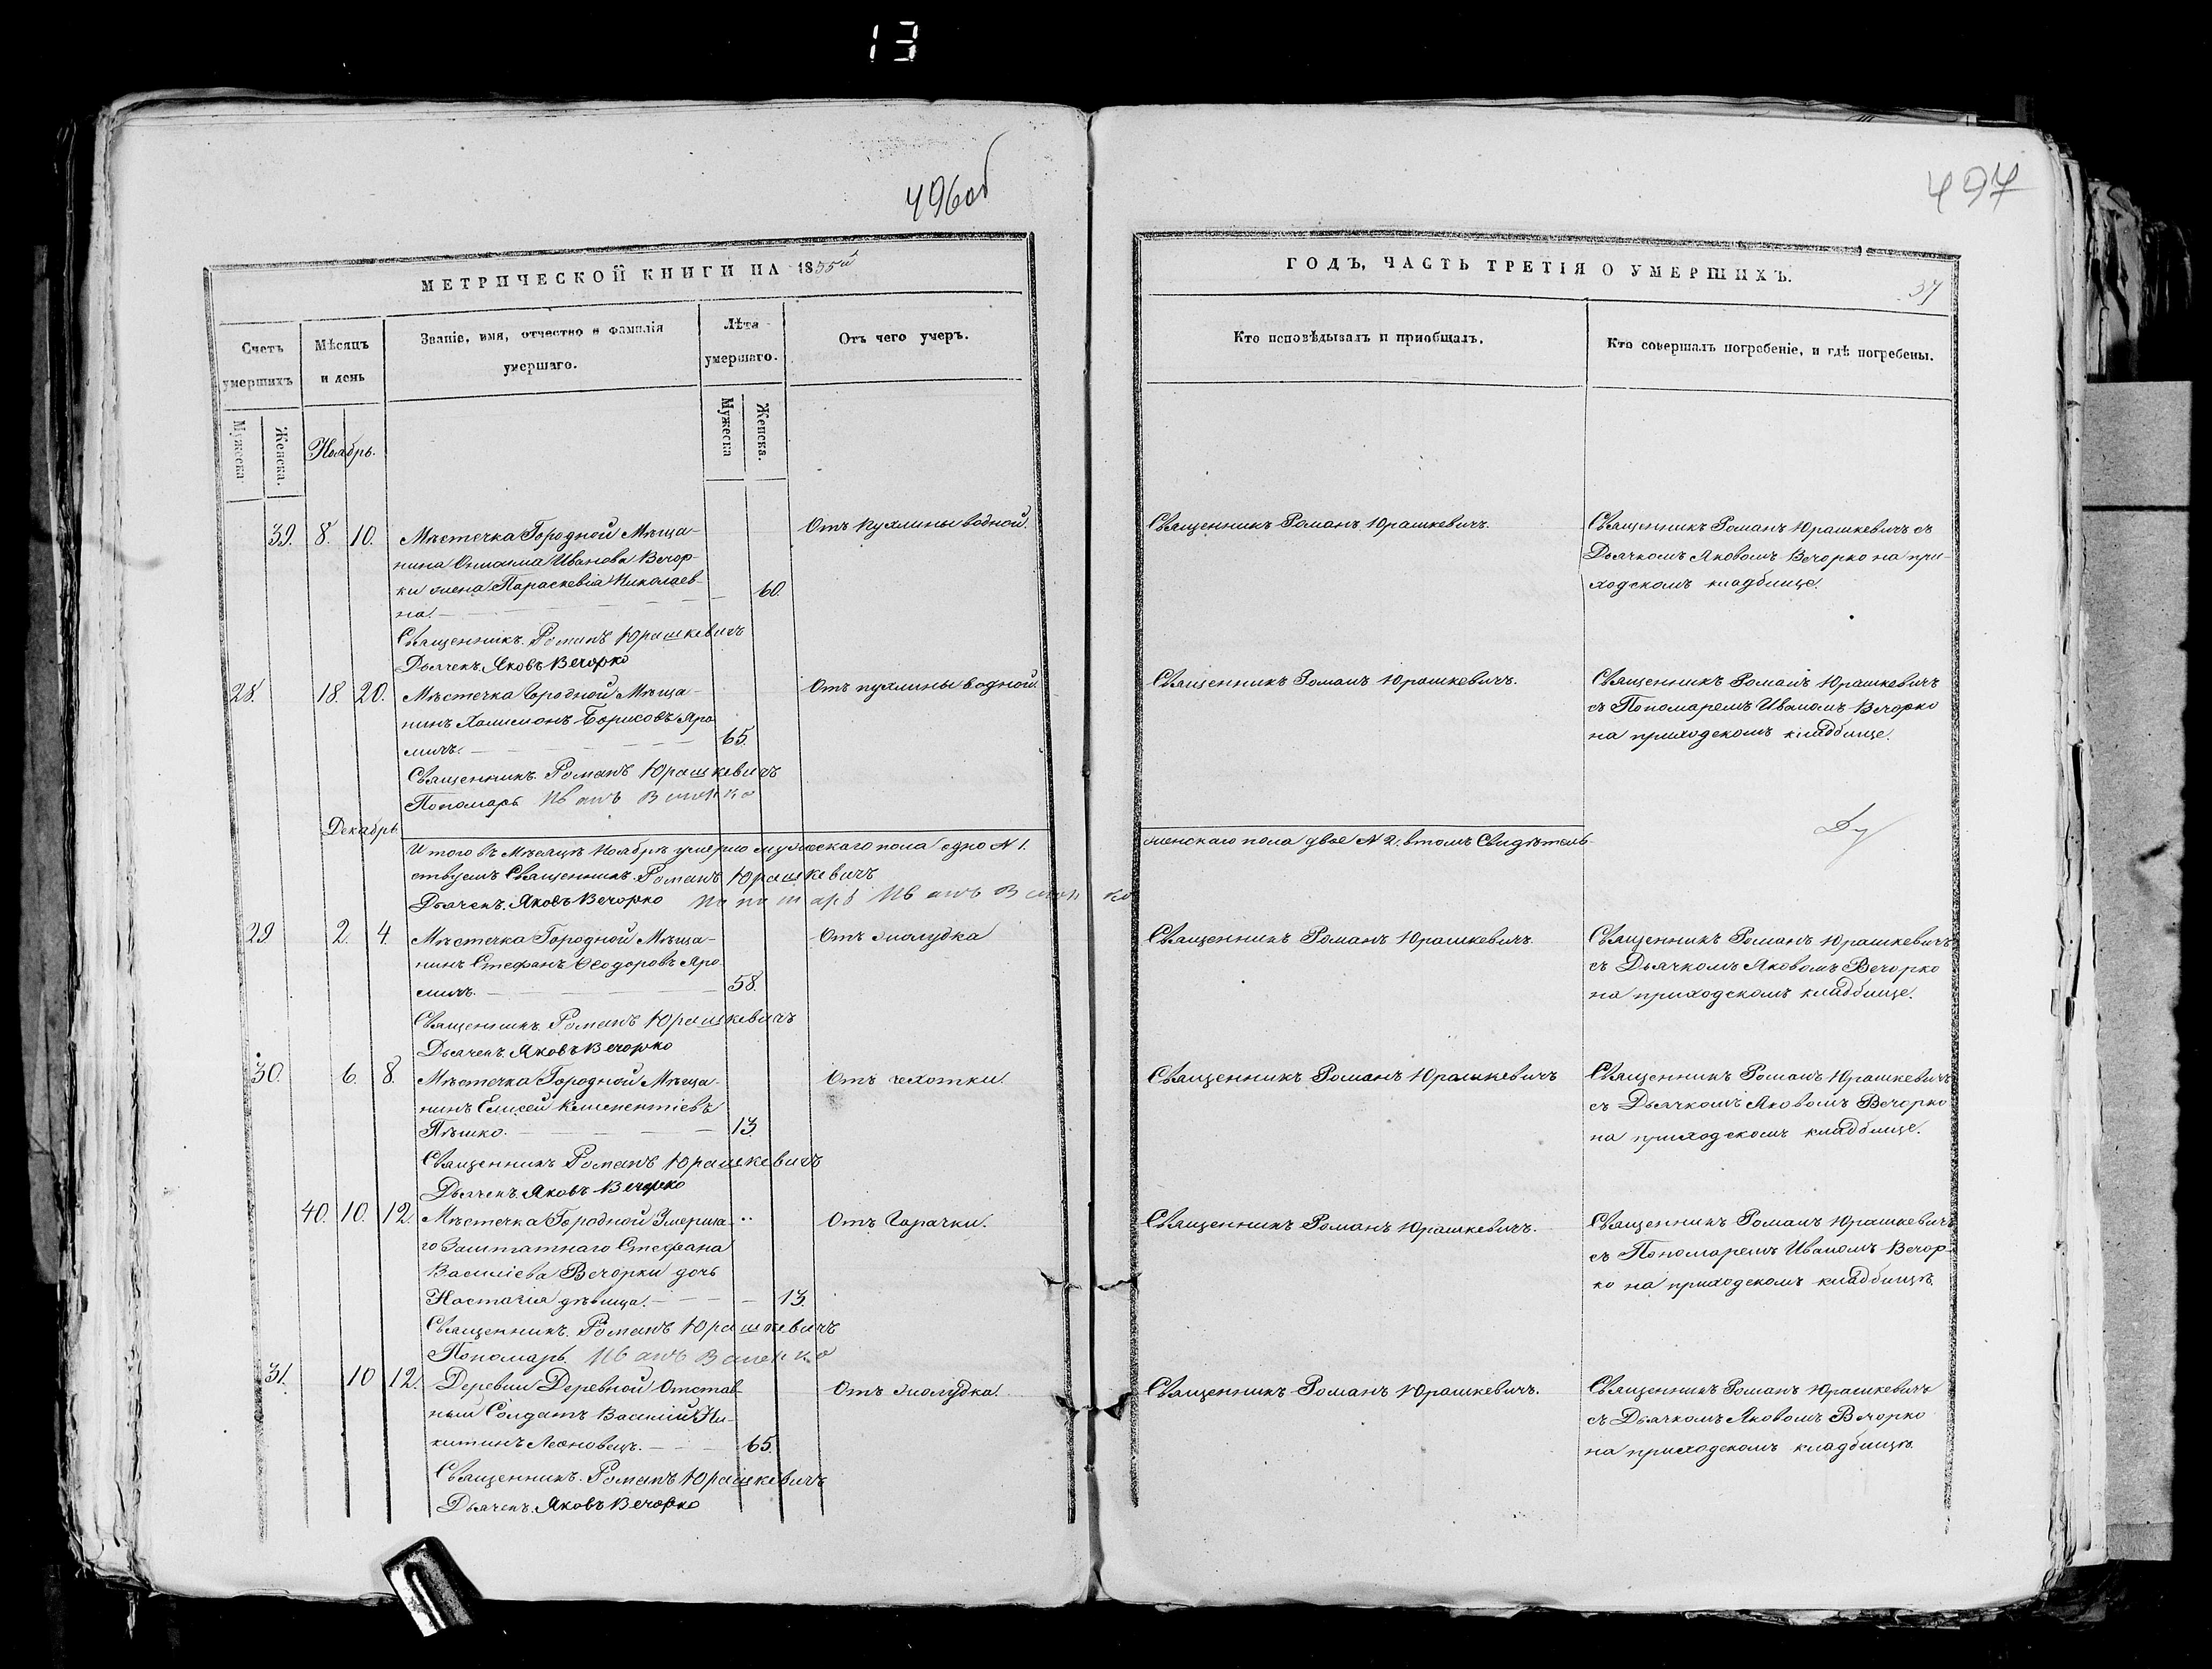 13
496об
497
МЕТРИЧЕСКОЙ КНИГИ НА 1855й
ГОДЪ, ЧАСТЬ ТРЕТІЯ О УМЕРШИХЪ.
37
Счетъ умершихъ
Мѣсяцъ и день
Званіе, имя, отчество и фамилія умершаго.
Лѣта умершаго.
Отъ чего умеръ.
Кто исповѣдывалъ и пріобщалъ.
Кто совершалъ погребеніе, и гдѣ погребены.
Мужеска
Женска.
Мужеска
Женска.
Ноябрь.
39. 8. 10. Мѣстечка Городной Мѣща-
нина Ивановa Вечор-
ки жена Параскевіа Николаев-
на. 60.
Отъ пухлины водной.
Священникъ Романъ Юрашкевичъ.
Священникъ Романъ Юрашкевичъ съ
Дьячкомъ Яковомъ Вечорко на при-
ходскомъ кладбище.
Священникъ. Романъ Юрашкевичъ
Дьячекъ. Яковъ Вечорко
28. 18. 20. Мѣстечка Городной Мѣща-
нинъ Борисовъ Яро
мичъ. 65.
Отъ пухлины водной.
Священникъ Романъ Юрашкевичъ.
Священникъ Романъ Юрашкевичъ
съ Пономаремъ Иваномъ Вечорко
на приходскомъ кладбище.
Священникъ. Романъ Юрашкевичъ
Пономарь Иванъ
Декабрь.
Итого въ Мѣсяцѣ Ноябрѣ умерло мужескаго пола одно N 1.
женскаго пола двое N 2. втомъ Свидѣтель-
ствуемъ Священникъ. Романъ Юрашкевичъ
Дьячекъ. Яковъ Вечорко Иванъ
29 2. 4. Мѣстечка Городной Мѣща-
нинъ Стефанъ Ѳеодоровъ Яро
мичъ. 58.
Отъ жолудка
Священникъ Романъ Юрашкевичъ.
Священникъ Романъ Юрашкевичъ
съ Дьячкомъ Яковомъ Вечорко
на приходскомъ кладбище.
Священникъ. Романъ Юрашкевичъ
Дьячекъ. Яковъ Вечорко
30. 6. 8. Мѣстечка Городной Мѣща-
нинъ Елисей Климентіевъ
Пѣшко. 13.
Отъ чехотки.
Священникъ Романъ Юрашкевичъ
Священникъ Романъ Юрашкевичъ
съ Дьячкомъ Яковомъ Вечорко
на приходскомъ кладбище.
Священникъ Романъ Юрашкевичъ
Дьячекъ. Яковъ Вечорко
40. 10. 12. Мѣстечка Городной Умерша-
го Заштатнаго Стефана
Василіева Вечорки дочь
Настасія дѣвица. 13.
Отъ Горачки.
Священникъ Романъ Юрашкевичъ.
Священникъ Романъ Юрашкевичъ
съ Пономаремъ Иваномъ Вечор-
ко на приходскомъ кладбищѣ.
Священникъ. Романъ Юрашкевичъ
Пономарь. Иванъ
31. 10 12. Деревни Деревной Отстав-
ный Солдатъ Василій Ни-
китинъ Леоновецъ. 65.
Отъ жолудка.
Священникъ Романъ Юрашкевичъ.
Священникъ Романъ Юрашкевичъ
съ Дьячкомъ Яковомъ Вечорко
на приходскомъ кладбищѣ.
Священникъ. Романъ Юрашкевичъ
Дьячекъ. Яковъ Вечорко